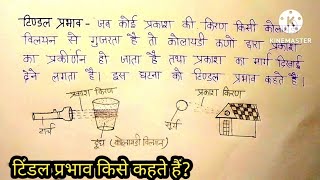 टिण्डल प्रभाव - जब कोई प्रकाश की किरण किसी कोलायडी
विलयन से गुजरता है तो कोलायडी कणो द्वारा प्रकाश
का प्रकीर्णन हो जाता है तथा प्रकाश का मार्ग दिखाई
देने लगता है। इस घटना को टिण्डल प्रभाव कहते हैं।
KINEMASTER
प्रकाश किरण
प्रकाश किरण
टार्च
सूर्य
दूध (कोलायडी विलयन)
टिंडल प्रभाव किसे कहते हैं?